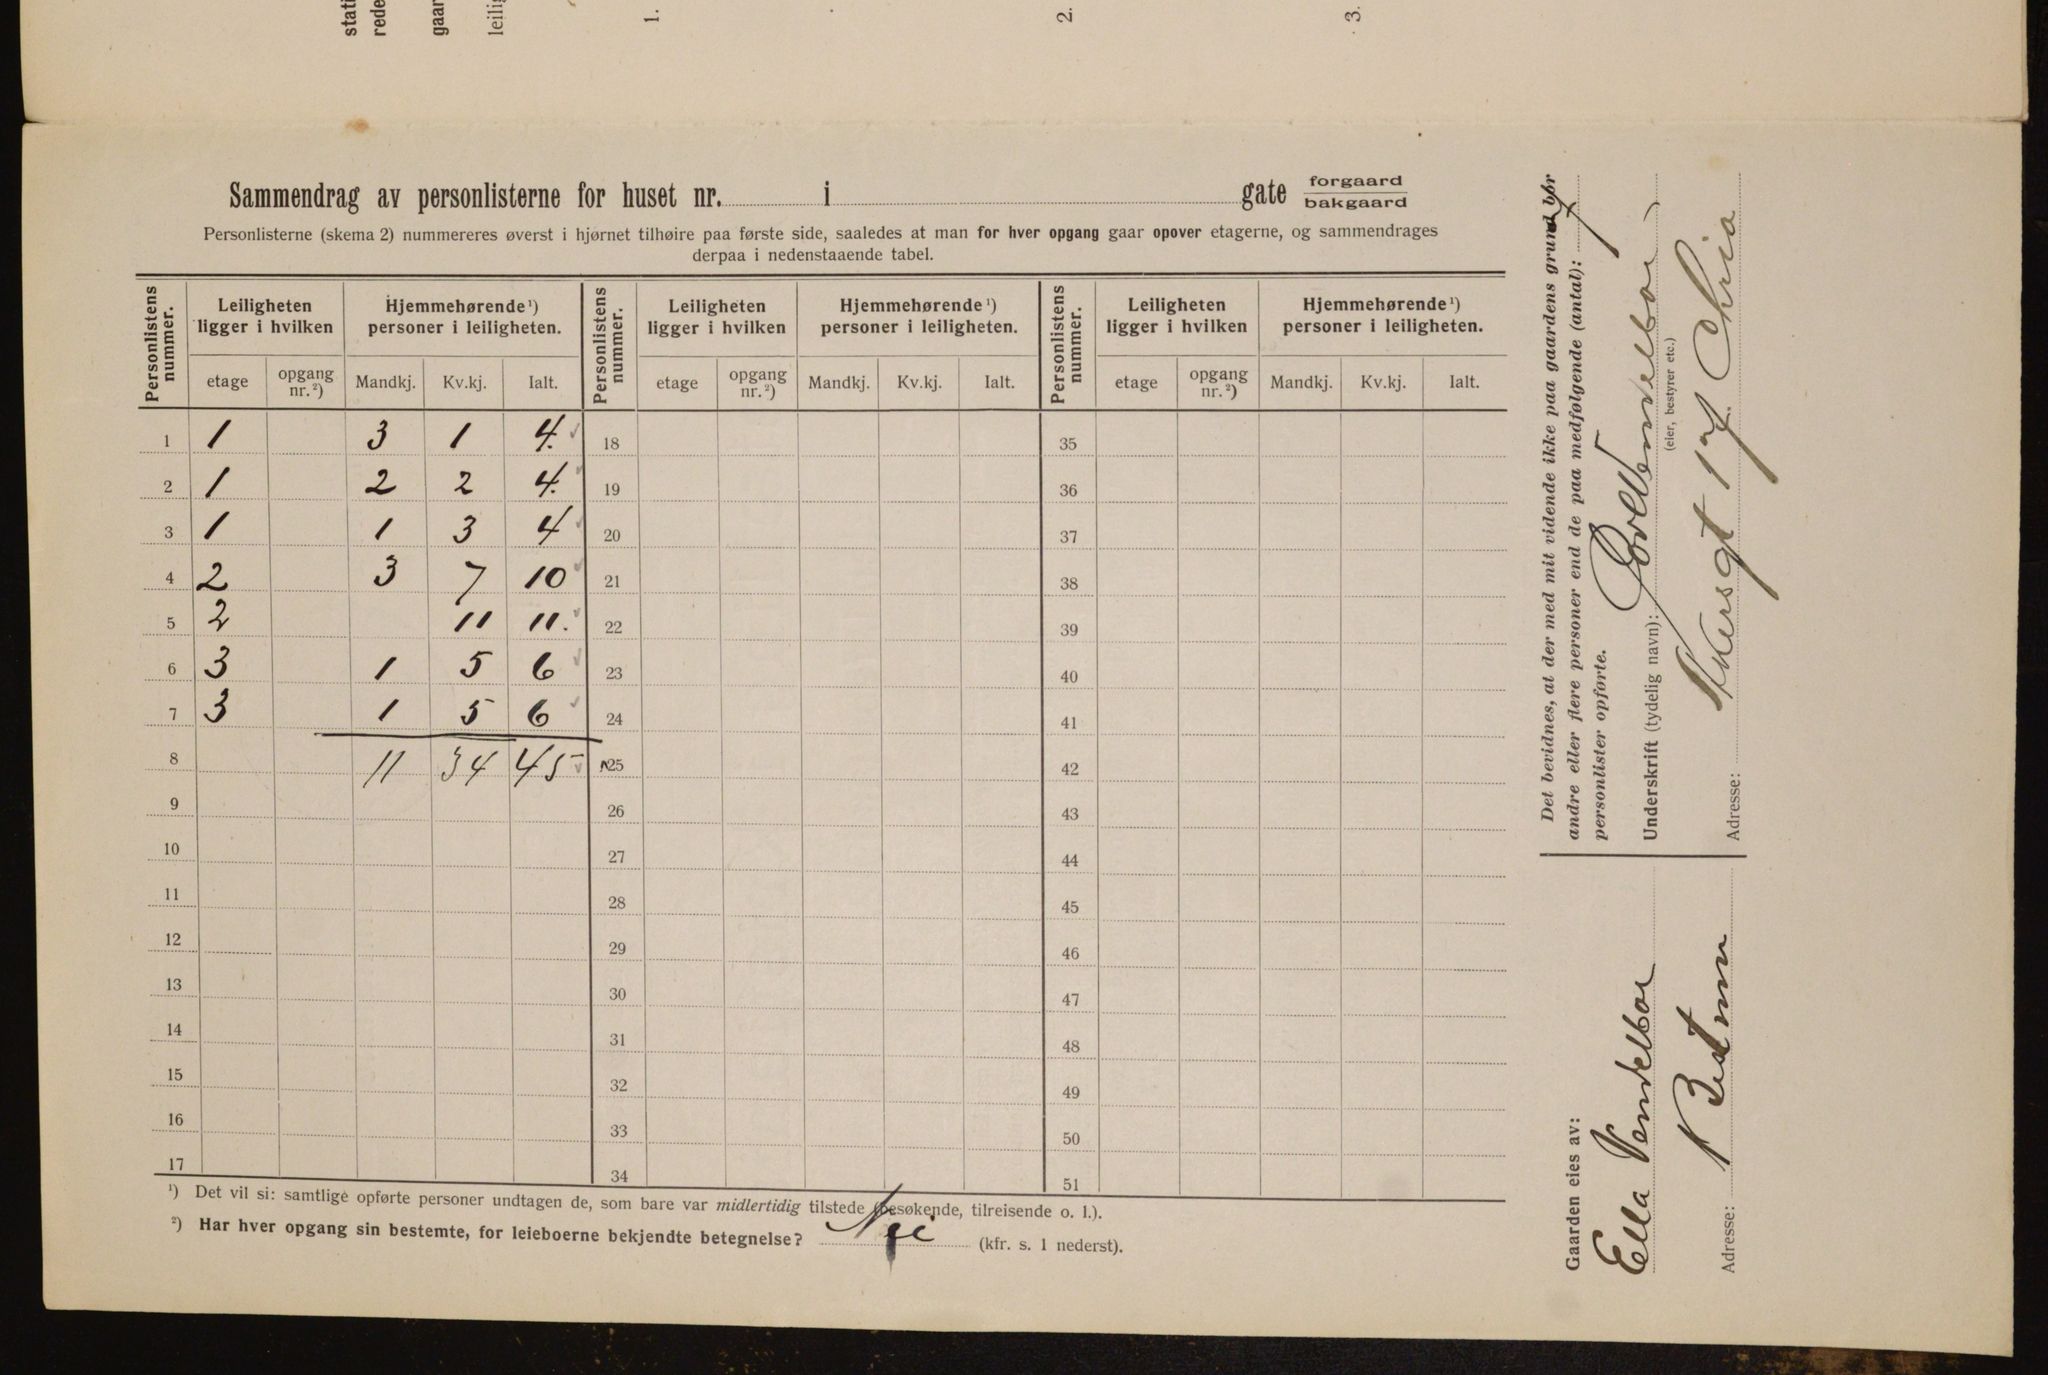 stati
rede
gaar
leilig
1.
2.
3.
Sammendrag av personlisterne for huset nr. i gate forgaard
bakgaard
Personlisterne (skema 2) nummereres øverst i hjørnet tilhøire paa første side, saaledes at man for hver opgang gaar opover etagerne, og sammendrages
derpaa i nedenstaaende tabel.
Personlistens nummer. Leiligheten ligger i hvilken Hjemmehørende¹) personer i leiligheten. Personlistens nummer. Leiligheten ligger i hvilken Hjemmehørende¹) personer i leiligheten. Personlistens nummer. Leiligheten ligger i hvilken Hjemmehørende¹) personer i leiligheten.
etage opgang nr.²) Mandkj. Kv.kj. Ialt. etage opgang nr.²) Mandkj. Kv.kj. Ialt. etage opgang nr.²) Mandkj. Kv.kj. Ialt.
1 1 3 1 4. 18 35
2 1 2 2 4. 19 36
3 1 1 3 4 20 37
4 2 3 7 10 21 38
5 2 11 11. 22 39
6 3 1 5 6 23 40
7 3 1 5 6 24 41
8 11 34 45 25 42
9 26 43
10 27 44
11 28 45
12 29 46
13 30 47
14 31 48
15 32 49
16 33 50
17 34 51
¹) Det vil si: samtlige opførte personer undtagen de, som bare var midlertidig tilstede (besøkende, tilreisende o. l.).
²) Har hver opgang sin bestemte, for leieboerne bekjendte betegnelse? Nei (kfr. s. 1 nederst).
Det bevidnes, at der med mit vidende ikke paa gaardens grund bor
andre eller flere personer end de paa medfølgende (antal): 7
personlister opførte.
Underskrift (tydelig navn):
(eier, bestyrer etc.)
Adresse: 17 Chria
Gaarden eies av:
Ella Vendelboe
Adresse: